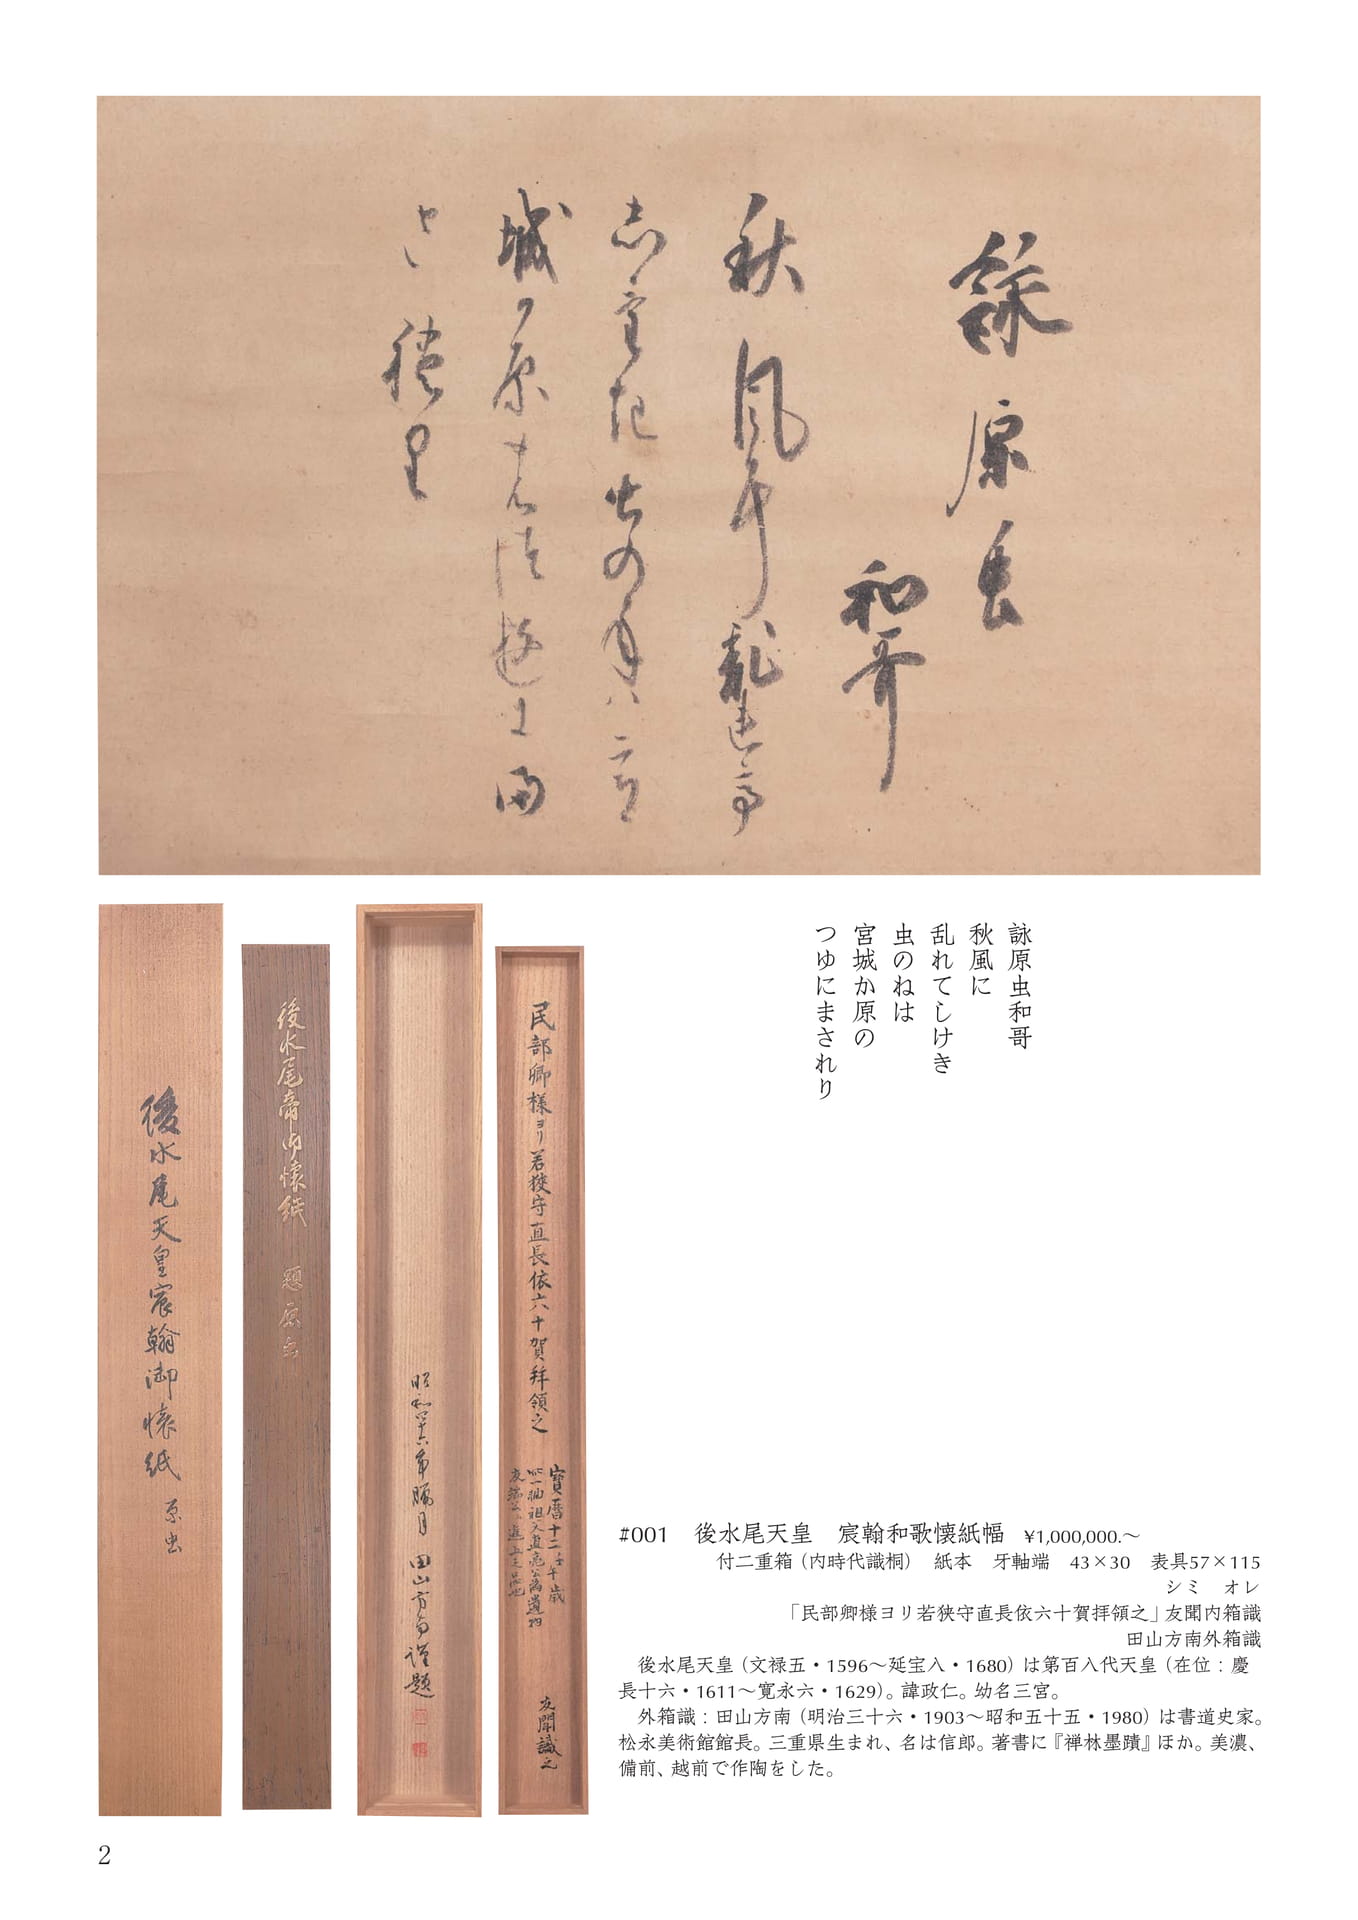 詠原虫
和哥
秋風耳乱連亭
志希起
虫の年ハ宮
城か原
能
津遊耳万
され里
詠原虫和哥
秋風に
乱れてしけき
虫のねは
宮城か原の
つゆにまされり
後水尾天皇宸翰御懐紙 原虫
後水尾帝御懐紙 題原虫
昭和四十六年臘月 田山方南謹題
民部卿様ヨリ若狹守直長依六十賀拝領之
寶暦十二壬午歳
此一軸祖父直亮公為遺物
友聞識之
#001 後水尾天皇 宸翰和歌懐紙幅 ¥1,000,000.〜
付二重箱（内時代識桐） 紙本 牙軸端 43×30 表具57×115
シミ オレ
「民部卿様ヨリ若狭守直長依六十賀拝領之」友聞内箱識
田山方南外箱識
後水尾天皇（文禄五・1596〜延宝八・1680）は第百八代天皇（在位：慶
長十六・1611〜寛永六・1629）。諱政仁。幼名三宮。
外箱識：田山方南（明治三十六・1903〜昭和五十五・1980）は書道史家。
松永美術館館長。三重県生まれ、名は信郎。著書に『禅林墨蹟』ほか。美濃、
備前、越前で作陶をした。
2